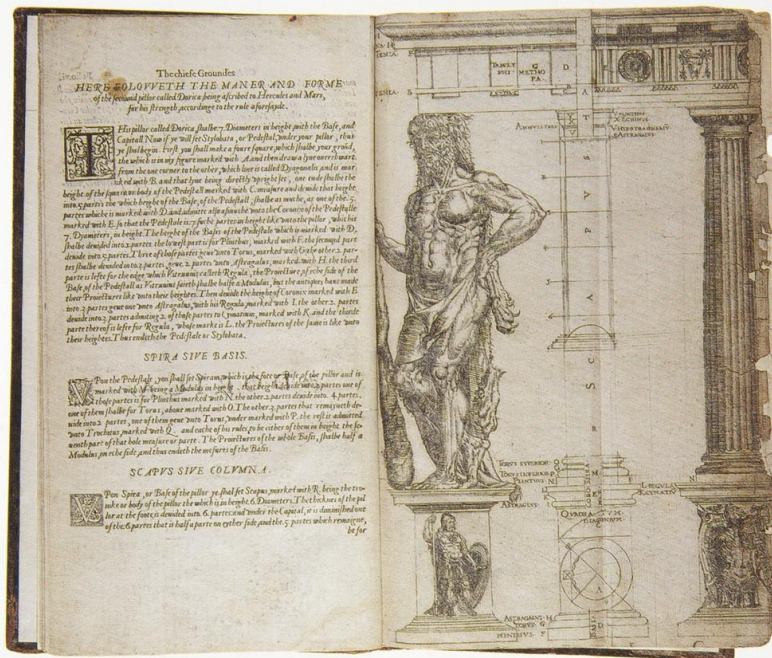 The chiefe Groundes
HERE FOLOVVETH THE MANER AND FORME
of the second pillor called Dorica being ascribed to Hercules and Mars,
for his strength accordinge to the rule aforesayde.
This pillor called Dorica shalbe .7. Diameters in height with the Base, and
Capitall Now if ye will set Stylobata, or Pedestal, vnder your pillor, thus
ye shal begin. First you shall make a foure square, which shalbe your ground,
the which is in my figure marked with A. and then draw a lyne overthwart
from the one corner to the other, which line is called Dyagonalis and is mar
ked with B. and that lyne being directly vpright set, one ende shalbe the
height of the square or body of the Pedestall marked with C. measure and devide that height
into .5. partes the which height of the Base, of the Pedestall, shalbe as muche, as one of the .5.
partes whiche is marked with D. and admitte also asmuche vnto the Coronix of the Pedestalle
marked with E. so that the Pedestale is .7. suche partes in height like vnto the pillor, which is
7. Dyameters, in height. The height of the Basis of the Pedestale which is marked with D,
shalbe devided into .2. partes the lowest part is for Plinthus, marked with F. the second part
devide into .5. partes. Three of those partes geve vnto Torus, marked with G the other .2. par-
tes shalbe devided into .3. partes, geve .2. partes vnto Astragalus, marked with H. the third
parte is lefte for the edge, which Vitruuius calleth Regula, the Proiecture, of eche side of the
Base, of the Pedestall as Vitruuius saieth shalbe half a Modulus, but the antiques haue made
their Proiectures like vnto their heightes. Then devide the height of Coronix marked with E
into .2. partes geue one vnto Astragalus, with his Regula, marked with I. the other .2. partes
devide into .3. partes admiting .2. of those partes to Cymatium, marked with K. and the thirde
parte thereof is lefte for Regula, whose marke is L. the Proiectures of the same is like vnto
their heightes. Thus endeth the Pedistale or Stylobata.
SPIRA SIVE BASIS.
Vpon the Pedestale, you shall set Spiram, which is the fote or Base, of the pillor and is
marked with M being a Modulus in height, that height devide into .3. partes one of
those partes is for Plinthus marked with N. the other .2. partes devide into .4. partes,
one of them shalbe for Torus, aboue marked with O. The other .3. partes that remayneth de-
vide into .2. partes, one of them geve vnto Torus, vnder marked with P. the rest is admitted
vnto Trochilus, marked with Q. and eache of his rules to be either of them in height, the se-
uenth part of that hole measure or parte. The Proiectures of the whole Basis, shalbe half a
Modulus, on eche side, and thus endeth the mesures of the Basis.
SCAPVS SIVE COLVMNA.
Vpon Spira, or Base of the pillor ye shal set Scapus, marked with R. being the tro-
nke or body of the pillor the which is in height .6. Diameters. The thicknes of the pil
lor at the foote, is devided into .6. partes: and vnder the Capital, it is diminished one
of the .6. partes that is half a parte on eyther side, and the .5. partes which remaigne,
be for
METHO
PA.
SCAPVS
QVADRATVM